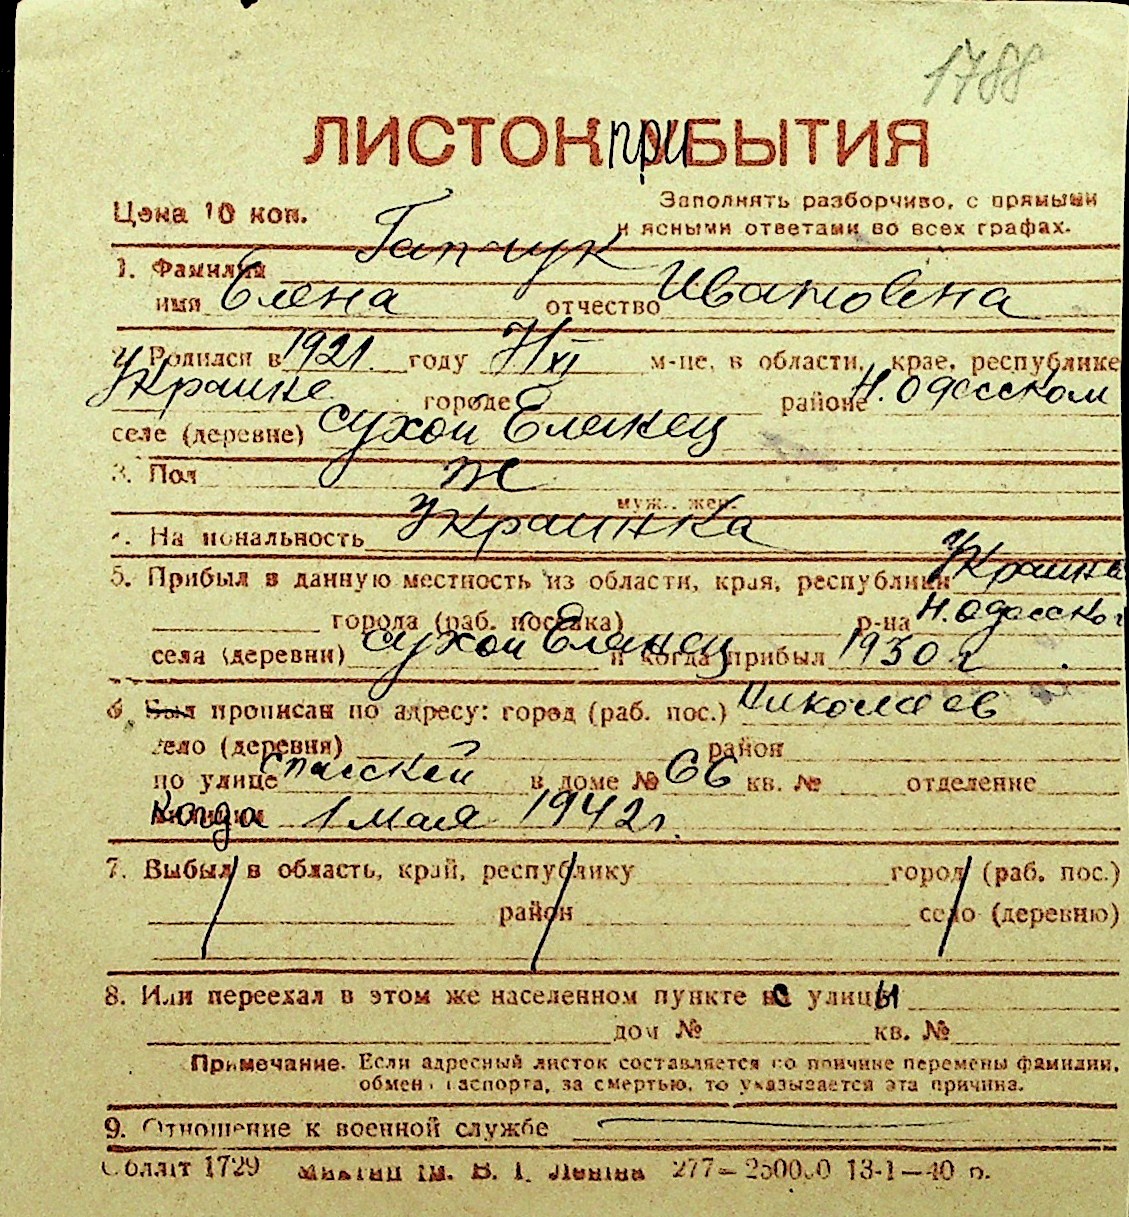 1788
ЛИСТОК ПРИБЫТИЯ
Цена 10 коп.
Заполнять разборчиво, с прямыми
и ясными ответами во всех графах.
Гапчук
1. Фамилия
имя Елена отчество Ивановна
2. Родился в 1921 году 7/XI м-це, в области, крае, республике
Украине городе районе Н. Одесском
селе (деревне) Сухой Еланец
3. Пол Ж
муж., жен.
4. Национальность Украинка
5. Прибыл в данную местность из области, края, республики Украина
города (раб. поселка) р-на Н. Одесского
села (деревни) Сухой Еланец и когда прибыл 1930 г
6. Был прописан по адресу: город (раб. пос.) Николаев
село (деревня) район
по улице Спасской в доме № 66 кв. № отделение
Когда 1 мая 1942 г.
7. Выбыл в область, край, республику город (раб. пос.)
район село (деревню)
8. Или переехал в этом же населенном пункте с улицы
дом № кв. №
Примечание. Если адресный листок составляется по причине перемены фамилии,
обмена паспорта, за смертью, то указывается эта причина.
9. Отношение к военной службе
Обллiт 1729 iм. В. I. Ленiна 277— 250000 13-1—40 р.